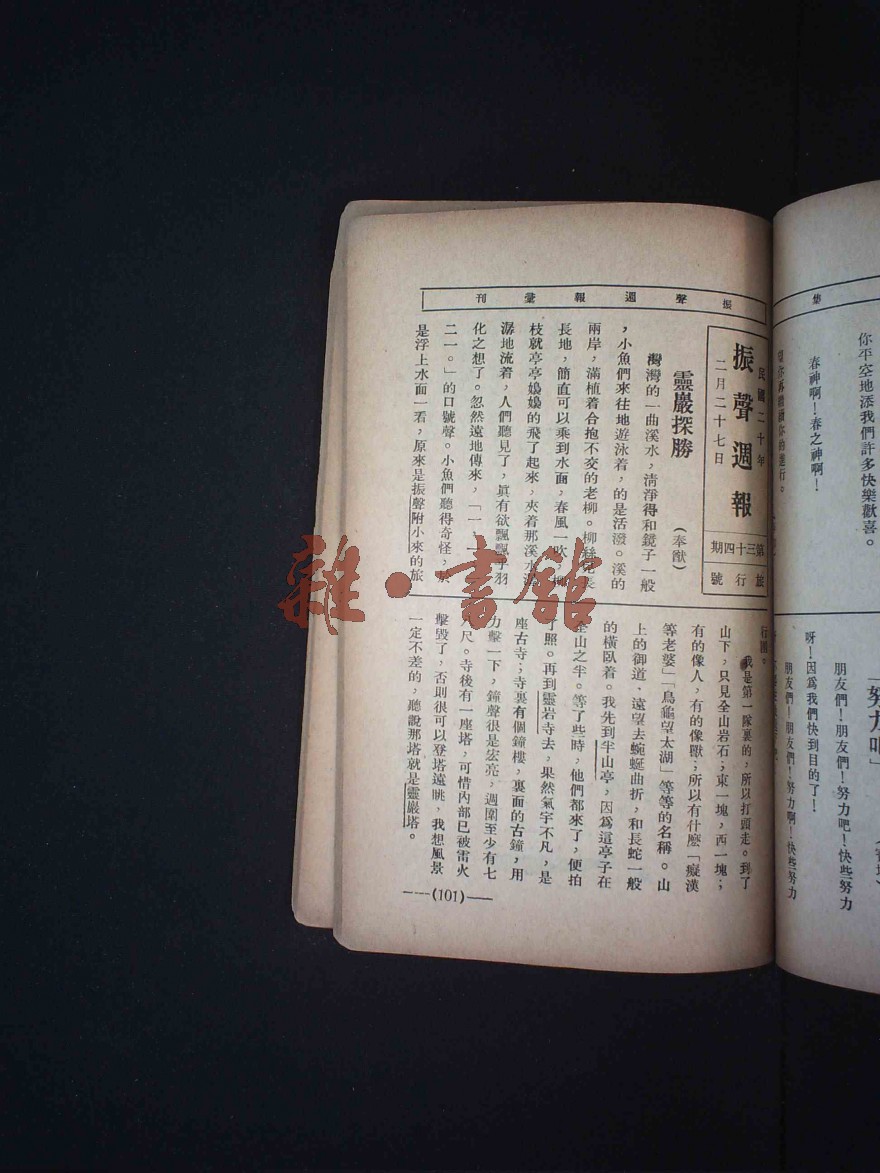 振聲週報彙刊
民國二十年
振聲週報
二月二十七日
第三十四期
旅行號
靈巖探勝
（奉猷）
灣灣的一曲溪水，清淨得和鏡子一般
，小魚們來往地遊泳着，的是活潑。溪的
兩岸，滿植着合抱不交的老柳。柳絲兒長
長地，簡直可以乘到水面，春風一吹，柳
枝就亭亭嬝嬝的飛了起來，夾着那溪水潺
潺地流着，人們聽見了，眞有欲飄飄乎羽
化之想了。忽然遠地傳來，「一二一
二一。」的口號聲。小魚們聽得奇怪，於
是浮上水面一看，原來是振聲附小來的旅
行團。
我是第一隊裏的，所以打頭走。到了
山下，只見全山岩石；東一塊，西一塊；
有的像人，有的像獸；所以有什麽「癡漢
等老婆」「烏龜望太湖」等等的名稱。山
上的御道，遠望去蜿蜒曲折，和長蛇一般
的橫臥着。我先到半山亭，因爲這亭子在
全山之半。等了些時，他們都來了，便拍
了照。再到靈岩寺去，果然氣宇不凡，是
座古寺；寺裏有個鐘樓，裏面的古鐘，用
力擊一下，鐘聲很是宏亮，週圍至少有七
八尺。寺後有一座塔，可惜內部已被雷火
擊毀了，否則很可以登塔遠眺，我想風景
一定不差的，聽說那塔就是靈巖塔。
(101)
你平空地添我們許多快樂歡喜。
春神啊！春之神啊！
你的進行。
「努力吧」
朋友們！朋友們！努力吧！快些努力
呀！因爲我們快到目的了！
朋友們！朋友們！努力啊！快些努力
雜·書館